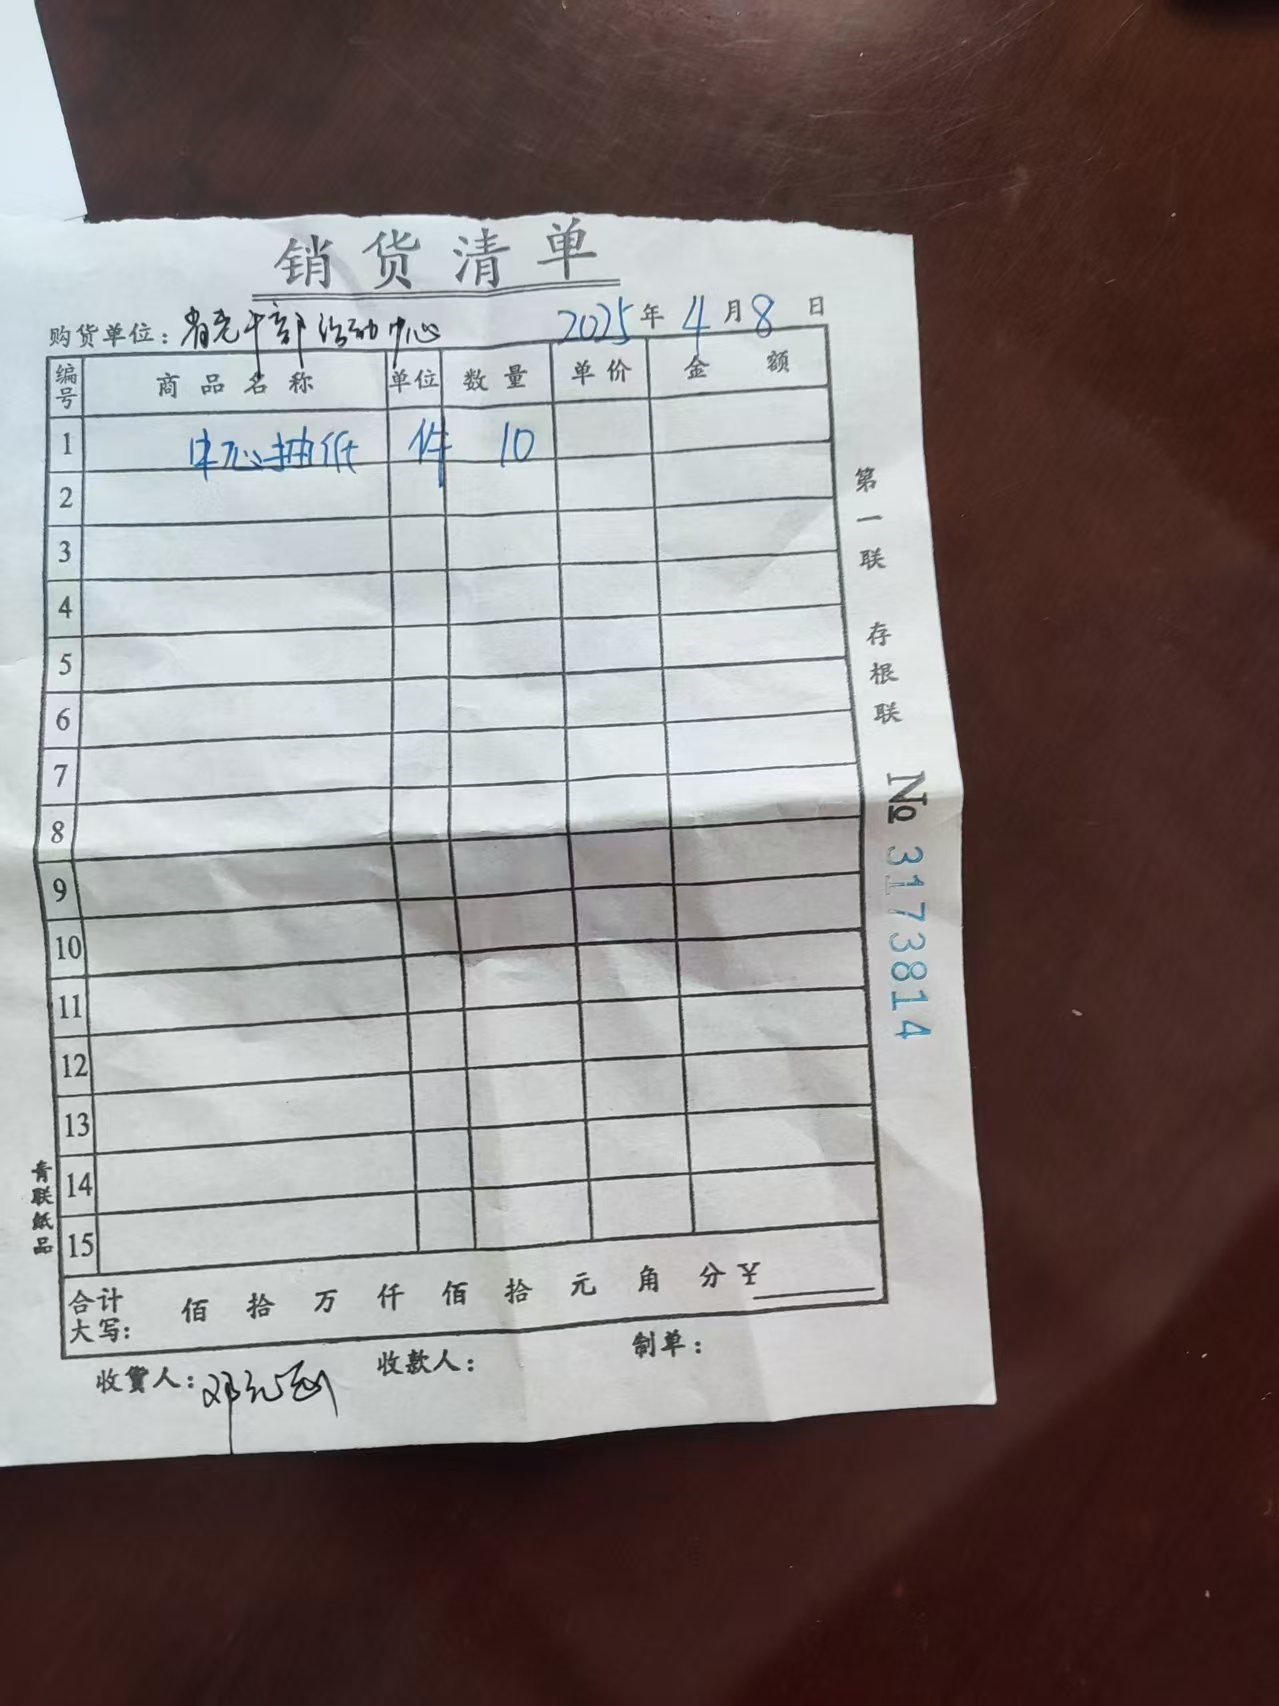 销货清单
购货单位：省老干部活动中心 2025年4月8日
编号 商品名称 单位 数量 单价 金额
1 中心抽纸 件 10
2
3
4
5
6
7
8
9
10
11
12
13
14
15
合计大写： 佰 拾 万 仟 佰 拾 元 角 分 ¥
收货人：邓 收款人： 制单：
第一联 存根联
№ 3173814
青联纸品